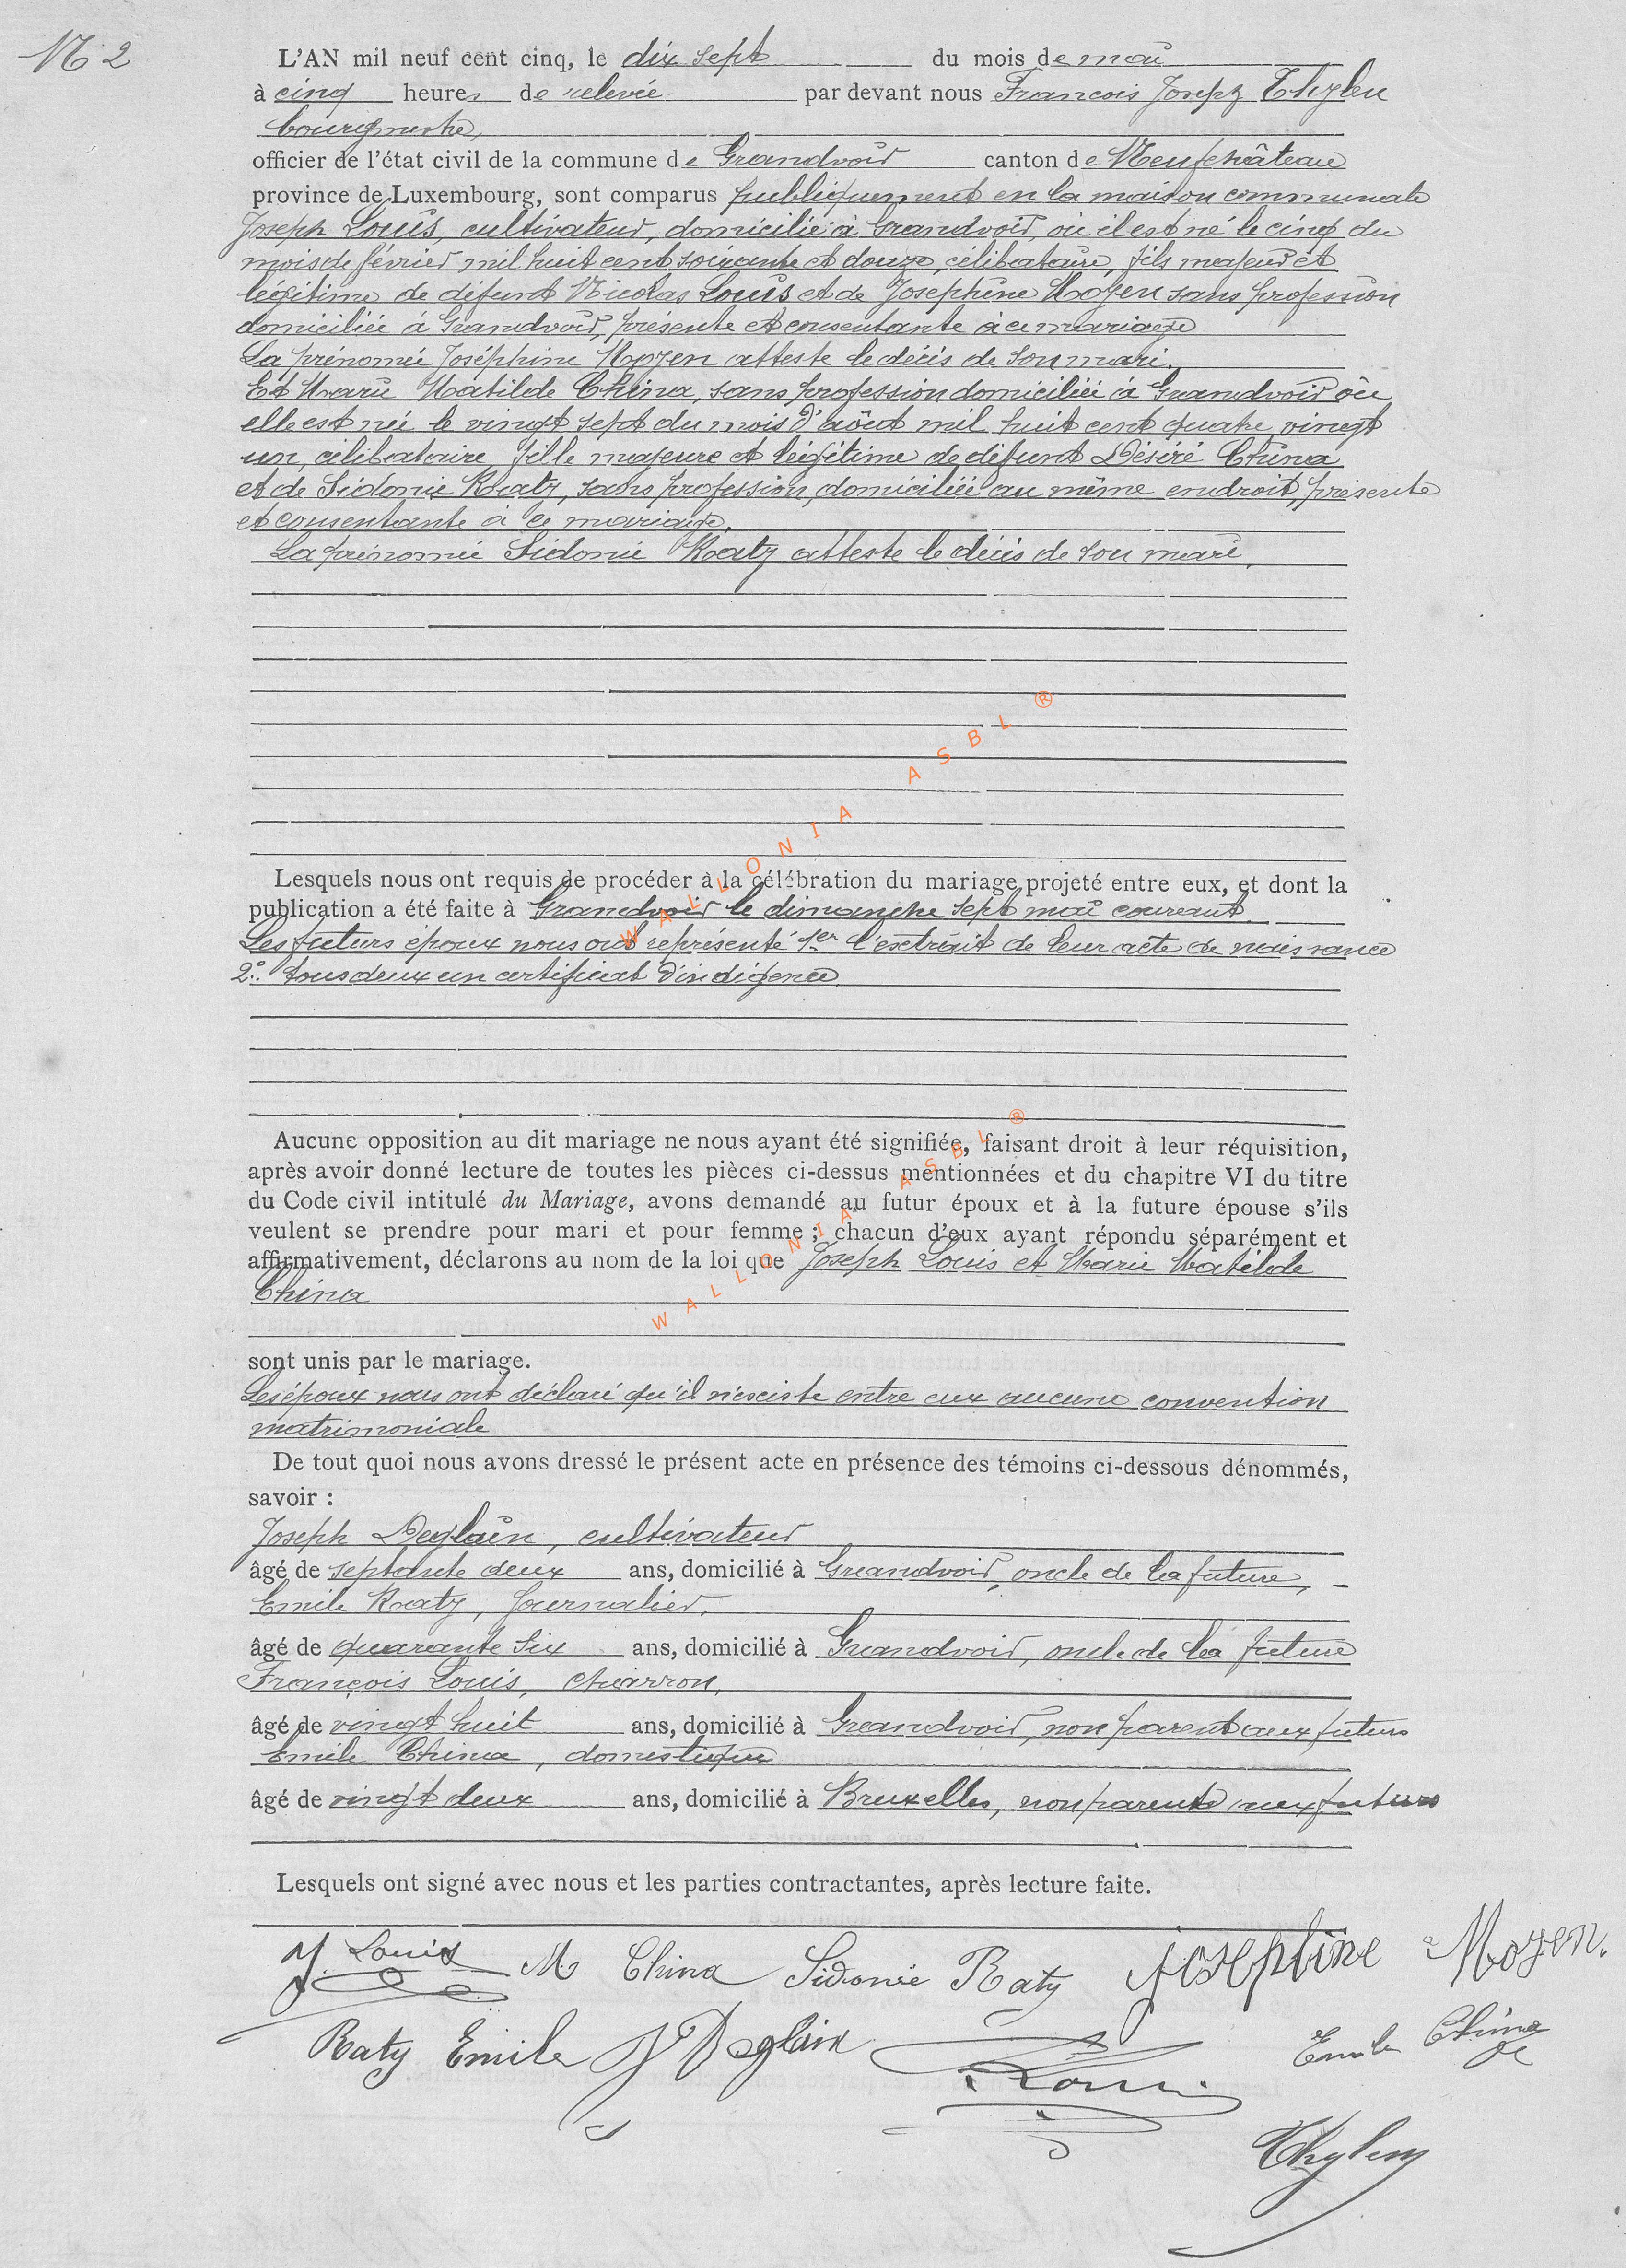 N° 2
L'AN mil neuf cent cinq, le dix sept du mois de mai
à cinq heures de relevée par devant nous Francois Joseph Thylen
bourgmestre,
officier de l'état civil de la commune de Grandvoir canton de Neufchâteau
province de Luxembourg, sont comparus publiquement en la maison communale
Joseph Louis, cultivateur, domicilié à Grandvoir, où il est né le cinq du
mois de février mil huit cent soixante et douze, célibataire, fils majeur et
légitime de défunt Nicolas Louis et de Josephine Moyen sans profession
domiciliée à Grandvoir, présente et consentante à ce mariage
La prénomée Joséphine Moyen atteste le décès de son mari.
Et Marie Matilde China, sans profession domiciliée à Grandvoir où
elle est née le vingt sept du mois d'août mil huit cent quatre vingt
un, célibataire, fille majeure et légitime de défunt Désiré China
et de Sidonie Raty, sans profession, domiciliée au même endroit, présente
et consentante à ce mariage.
La prénomée Sidonie Raty atteste le décès de son mari,
Lesquels nous ont requis de procéder à la célébration du mariage projeté entre eux, et dont la
publication a été faite à Grandvoir le dimanche sept mai courant.
Les futurs époux nous ont représenté 1er l'extrait de leur acte de naissance
2°. tous deux un certificat d'indigence.
Aucune opposition au dit mariage ne nous ayant été signifiée, faisant droit à leur réquisition,
après avoir donné lecture de toutes les pièces ci-dessus mentionnées et du chapitre VI du titre
du Code civil intitulé du Mariage, avons demandé au futur époux et à la future épouse s'ils
veulent se prendre pour mari et pour femme ; chacun d'eux ayant répondu séparément et
affirmativement, déclarons au nom de la loi que Joseph Louis et Marie Matilde
China
sont unis par le mariage.
Les époux nous ont déclaré qu'il n'existe entre eux aucune convention
matrimoniale
De tout quoi nous avons dressé le présent acte en présence des témoins ci-dessous dénommés,
savoir :
Joseph Deglain, cultivateur
âgé de septante deux ans, domicilié à Grandvoir, oncle de la future,
Emile Raty, journalier,
âgé de quarante six ans, domicilié à Grandvoir, oncle de la future
François Louis, charron,
âgé de vingt huit ans, domicilié à Grandvoir, non parent aux futurs
Emile China, domestique
âgé de vingt deux ans, domicilié à Bruxelles, non parent aux futurs
Lesquels ont signé avec nous et les parties contractantes, après lecture faite.
J. Louis M China Sidonie Raty joséphine Moyen.
Raty Emile J Deglain F Louis Emile China
Thylen
WALLONIA ASBL ®
WALLONIA ASBL ®